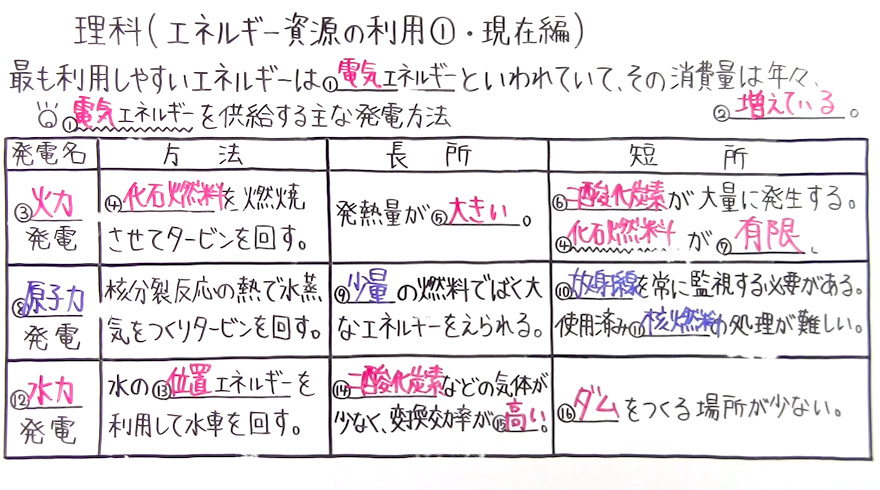 理科(エネルギー資源の利用①・現在編)
最も利用しやすいエネルギーは①電気エネルギーといわれていて、その消費量は年々、
②増えている。
①電気エネルギーを供給する主な発電方法
発電名 方法 長所 短所
③火力
発電
④化石燃料を燃焼
させてタービンを回す。
発熱量が⑤大きい。
⑥二酸化炭素が大量に発生する。
④化石燃料が⑦有限。
⑧原子力
発電
核分裂反応の熱で水蒸
気をつくりタービンを回す。
⑨少量の燃料でばく大
なエネルギーをえられる。
⑩放射線を常に監視する必要がある。
使用済み⑪核燃料の処理が難しい。
⑫水力
発電
水の⑬位置エネルギーを
利用して水車を回す。
⑭二酸化炭素などの気体が
少なく、変換効率が⑮高い。
⑯ダムをつくる場所が少ない。